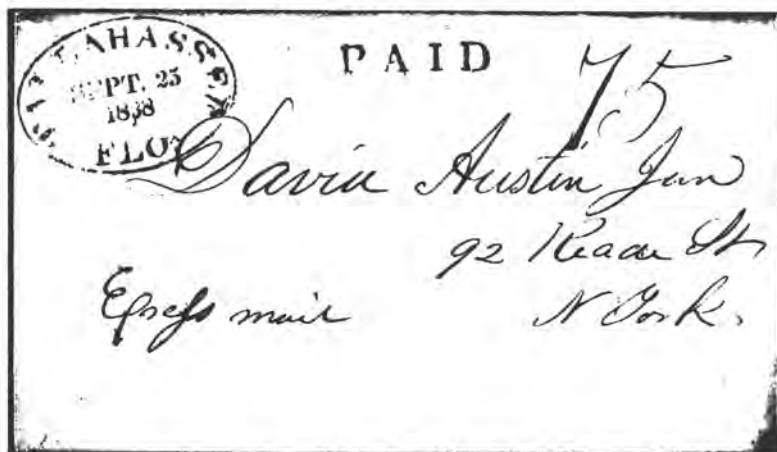 TALLAHASSEE
SEPT. 25
1838
FLOR
PAID
75
David Austin Jun
92 Reade St
N York.
Express mail